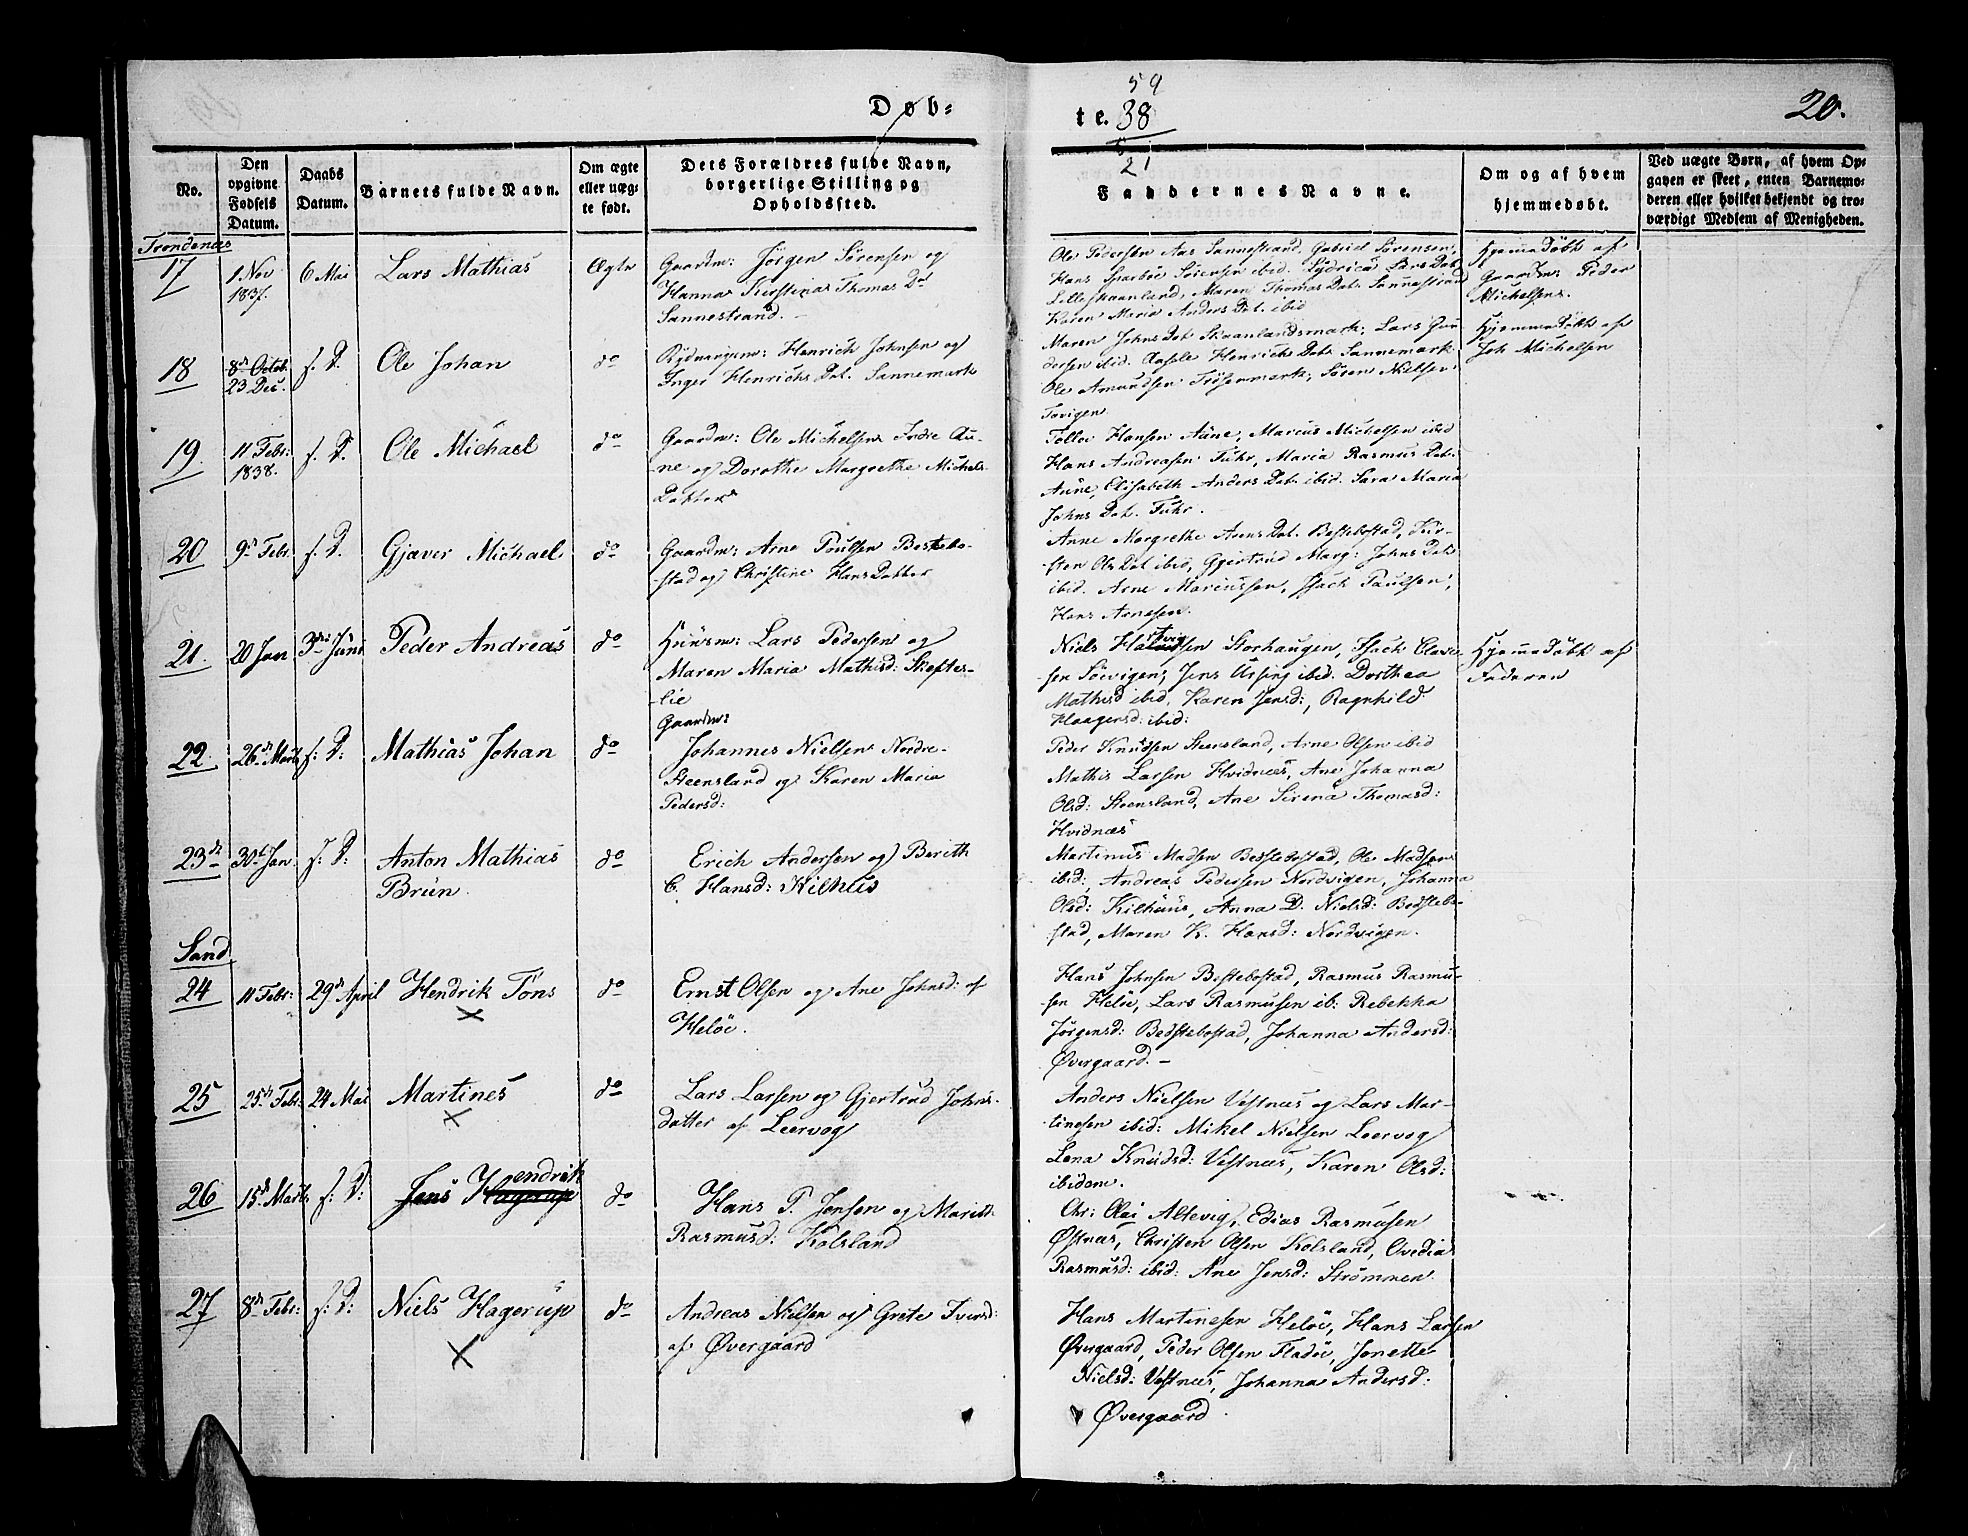 Døb-
te.
59
38
21
20.
No.
Den
opgivne
Fødsels
Datum.
Daabs
Datum.
Barnets fulde Navn.
Om ægte
eller uæg-
te født.
Dets Forældres fulde Navn,
borgerlige Stilling og
Opholdssted.
Faddernes Navne.
Om og af hvem
hjemmedøbt.
Ved uægte Børn, af hvem Op-
gaven er skeet, enten Barnemo-
deren eller hvilket bekjendt og tro-
værdigt Medlem af Menigheden.
Trondenæs
17
1 Nov
1837.
6 Mai
Lars Mathias
Ægte
Gaardm: Jørgen Sørensen og
Hanna Kirstina Thomas Dat
Sannestrand.
Ole Pedersen Aas Sannestrand, Gabriel Sørensen,
Hans Sparboe Sørensen ibid. Lars Dat.
Lilleskaanland, Maren Thomas Dat. Sannestrand
Karen Maria Anders Dat. ibid
Hjemmedøbt af
Gaardm: Peder
Michelsen.
18
8d Octob.
23 Dec.
s. D.
Ole Johan
do
Rydningsm: Henrich Johnsen og
Inger Henrichs Dat. Sannemark
Maren Johns Dat Skaanlandsmark, Lars Gun-
dersen ibid. Henrichs Dat. Sannemark
Ole Amundsen Trøsenmark, Søren Nielsen
Tovigen
Hjemmedøbt af
Joh Michelsen
19
11 Febr:
1838.
s. D.
Ole Michael
do
Gaardm: Ole Michelsen Indre Au-
ne og Dorothe Margrethe Michels-
Datter
Tollov Hansen Aune, Marcus Michelsen ibid
Hans Andreasen Fuhr, Maria Rasmus Dat.
Aune, Elisabeth Anders Dat. ibid. Sara Maria
Johns Dat. Fuhr.
20
9d Febr.
s. D.
Gjæver Michael
do
Gaardm: Arne Poulsen Bestebo-
stad og Christine Hans Datter
Anne Margrethe Arens Dat. Bestebostad, Kir-
sten Ols Dat ibid, Gjertrud Marg: Johns Dat
ibid. Arne Marcussen, Isach Paulsen,
Hans Arnesen.
21.
20 Jan
3die Juni
Peder Andreas
do
Huusm: Lars Pedersen og
Maren Maria Mathisd: Skefter-
lie
Niels Hartvigsen Storhaugen, Isach Clave-
sen Sørvigen, Jens Ursing ibid. Dorthea
Mathisd ibid, Karen Jensd:, Ragnhild
Haagensd: ibid:
Hjemmedøbt af
Faderen
22.
26d Marts
s: D:
Mathias Johan
do
Gaardm:
Johannes Nielsen Nordre-
Steensland og Karen Maria
Pedersd:
Peder Knudsen Steensland, Arne Olsen ibid
Mathis Larsen Hvidnæs, Ane Johanna
Olsd: Steensland, Ane Sirena Thomasd:
Hvidnæs
23de
30d Jan
s: D:
Anton Mathias
Brun
do
Erich Andersen og Berith
C. Hansd: Kilhus
Martinus Madsen Bedstebostad, Ole Madsen
ibid:, Andreas Pedersen Nordvigen, Johanna
Olsd: Kilhuus, Anna D. Nielsd: Bedstebo-
stad, Maren K. Hansd: Nordvigen.
Sand
24
11 Febr:
29d April
Hendrik Tøns
do
Ernst Olsen og Ane Johnsd: af
Heløe.
Hans Johnsen Bestebostad, Rasmus Rasmu-
sen Heløe, Lars Rasmusen ib: Rebekka
Jørgensd: Bedstebostad, Johanna Andersd:
Øvergaard. –
25
25d Febr:
24 Mai
Martines
do
Lars Larsen og Gjertrud Johns-
datter af Leervog
Anders Nielsen Vestnæs og Lars Mar-
tinesen ibid: Mikel Nielsen Leervog
Lena Knudsd: Vestnæs, Karen Olsd:
ibidem.
26
15d Marts
s: D:
Jens Hendrik
Hagerup
do
Hans P. Jensen og Marith
Rasmusd: Kolsland
Chr: Olai Altevig, Edias Rasmusen
Østnæs, Christen Olsen Kolsland, Ovedia
Rasmusd: ibid: Ane Jensd: Strømmen
27
8d Febr:
s: D:
Niels Hagerup
do
Andreas Nielsen og Grete Iversd:
af Øvergaard
Hans Martinesen Heløe, Hans Larsen
Øvergaard, Peder Olsen Fladøe, Jonette
Nielsd: Vestnæs, Johanna Andersd:
Øvergaard